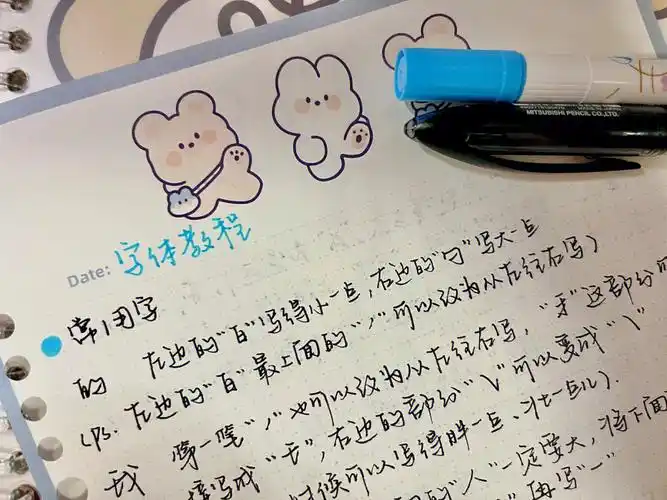 MITSUBISHI PENCIL CO.,LTD.
Date: 字体教程
常用字
的 左边的"白"写得小一点,右边的"勺"写大一点
(PS. 左边的"白"最上面的"丿"可以改为从左往右写)
我 第一笔"丿"也可以改为从左往右写,"手"这部分可
写成"扌",右边的部分"乀"可以变成"㇏"
时候可以写得胖一点、壮一点儿).
的"人"一定要大,将下面
再写"一"